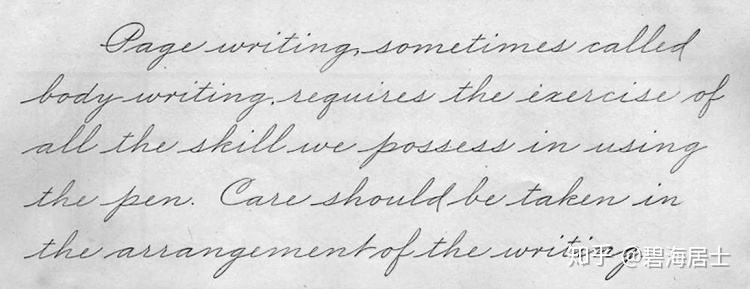 Page writing, sometimes called
body writing, requires the exercise of
all the skill we possess in using
the pen. Care should be taken in
the arrangement of the writing
知乎 @碧海居士